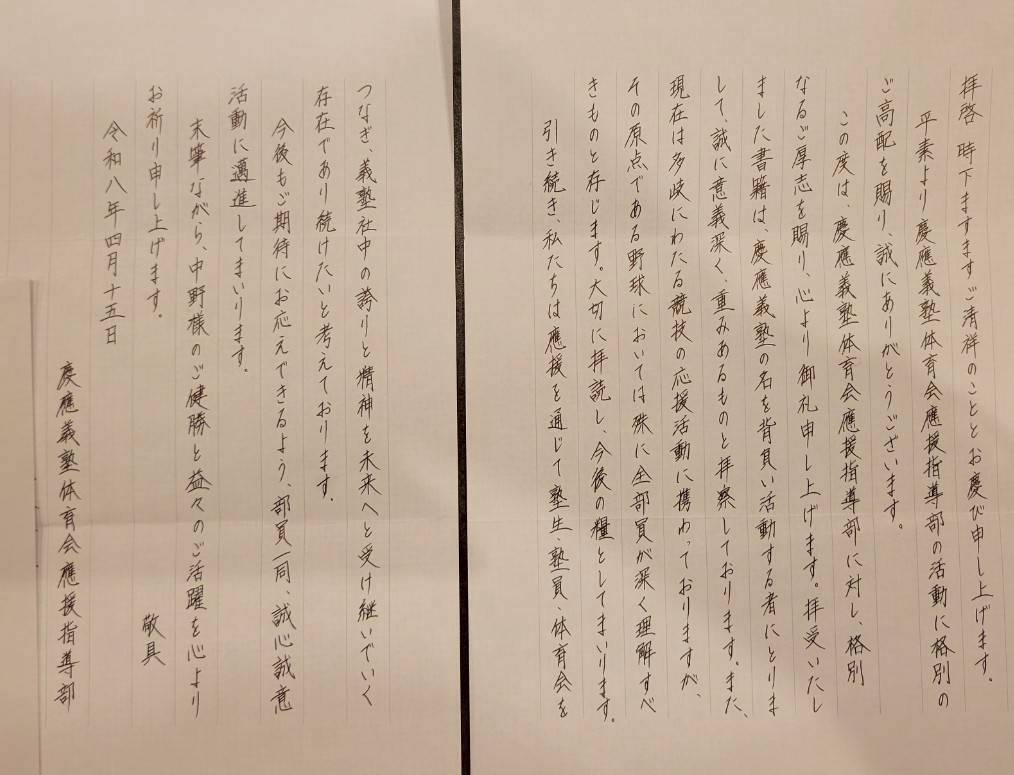 拝啓 時下ますますご清祥のこととお慶び申し上げます。
平素より慶應義塾体育会應援指導部の活動に格別の
ご高配を賜り、誠にありがとうございます。
この度は、慶應義塾体育会應援指導部に対し、格別
なるご厚志を賜り、心より御礼申し上げます。拝受いたし
ました書籍は、慶應義塾の名を背負い活動する者にとりま
して、誠に意義深く、重みあるものと拝察しております。また、
現在は多岐にわたる競技の応援活動に携わっておりますが、
その原点である野球においては殊に全部員が深く理解すべ
きものと存じます。大切に拝読し、今後の糧としてまいります。
引き続き、私たちは應援を通じて塾生・塾員・体育会を
つなぎ、義塾社中の誇りと精神を未来へと受け継いでいく
存在であり続けたいと考えております。
今後もご期待にお応えできるよう、部員一同、誠心誠意
活動に邁進してまいります。
末筆ながら、中野様のご健勝と益々のご活躍を心より
お祈り申し上げます。
敬具
令和八年四月十五日
慶應義塾体育会應援指導部